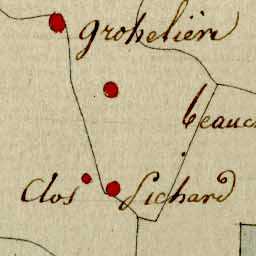 grobelière
beauc
Clos Lichard